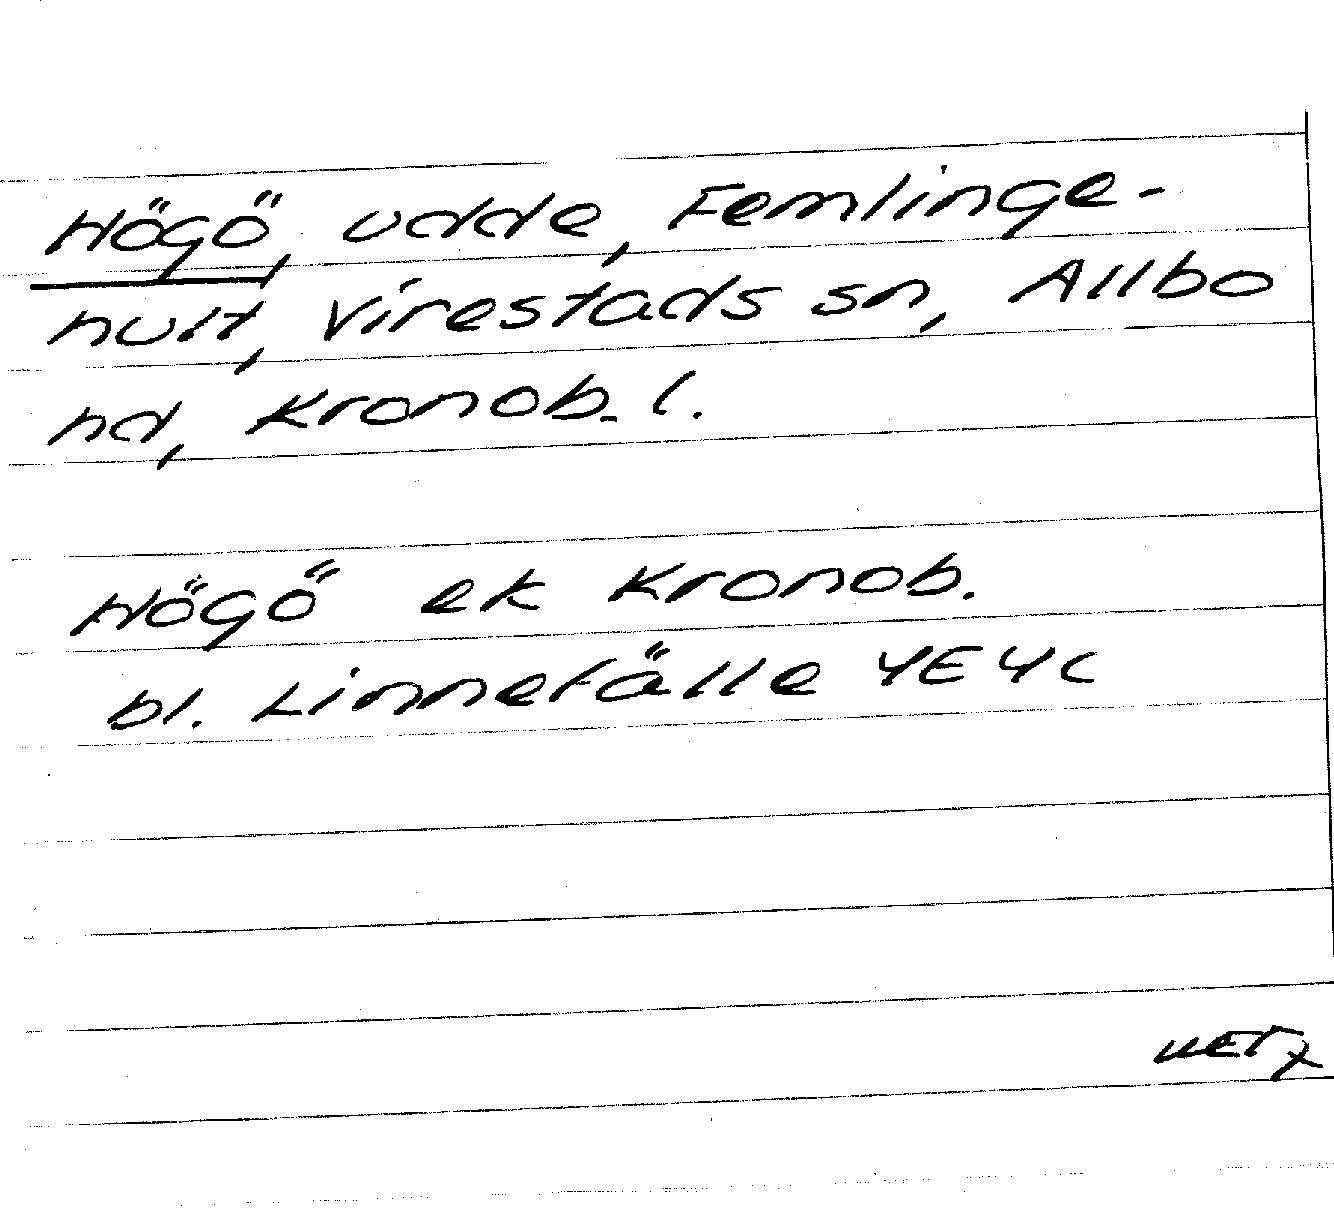 Högö, udde, Femlinge-
hult, Virestads sn, Allbo
hd, Kronob. l.
Högö ek Kronob.
bl. Linnefälle 4E4C